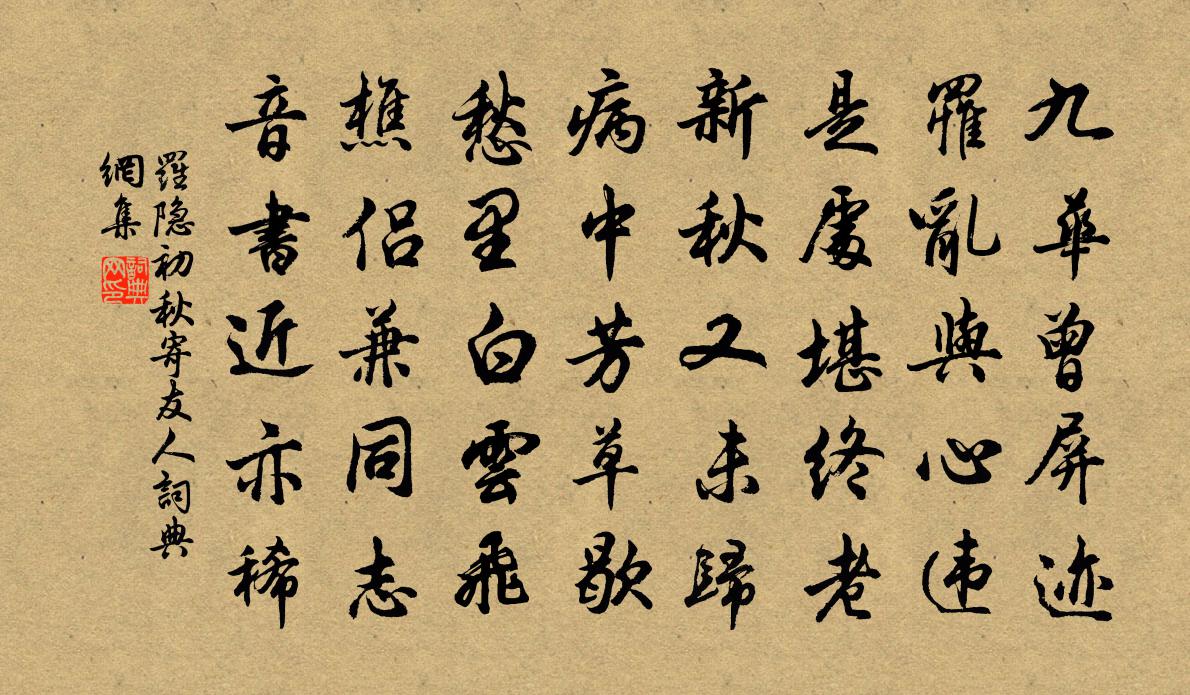 九華曾屏迹
罹亂與心违
是處堪終老
新秋又未歸
病中芳草歇
愁里白雲飛
樵侶兼同志
音書近亦稀
羅隐初秋寄友人詞典
網集
詞典
网印